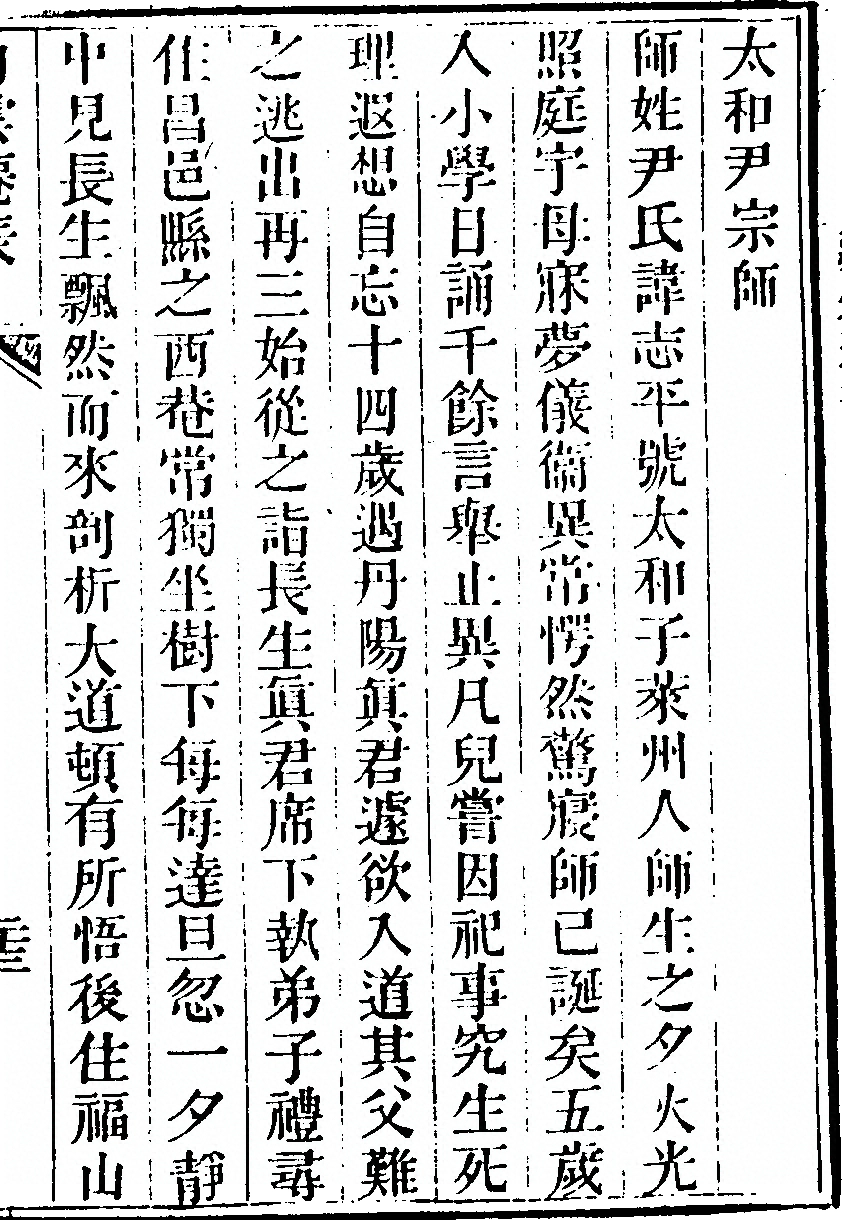 太和尹宗師
師姓尹氏諱志平號太和子萊州人師生之夕火光
照庭宇母寐夢儀衛異常愕然驚寤師已誕矣五歲
入小學日誦千餘言舉止異凡兒嘗因祀事究生死
理遐想自忘十四歲遇丹陽眞君遽欲入道其父難
之逃出再三始從之詣長生眞君席下執弟子禮尋
住昌邑縣之西菴常獨坐樹下每每達旦忽一夕靜
中見長生飄然而來剖析大道頓有所悟後住福山